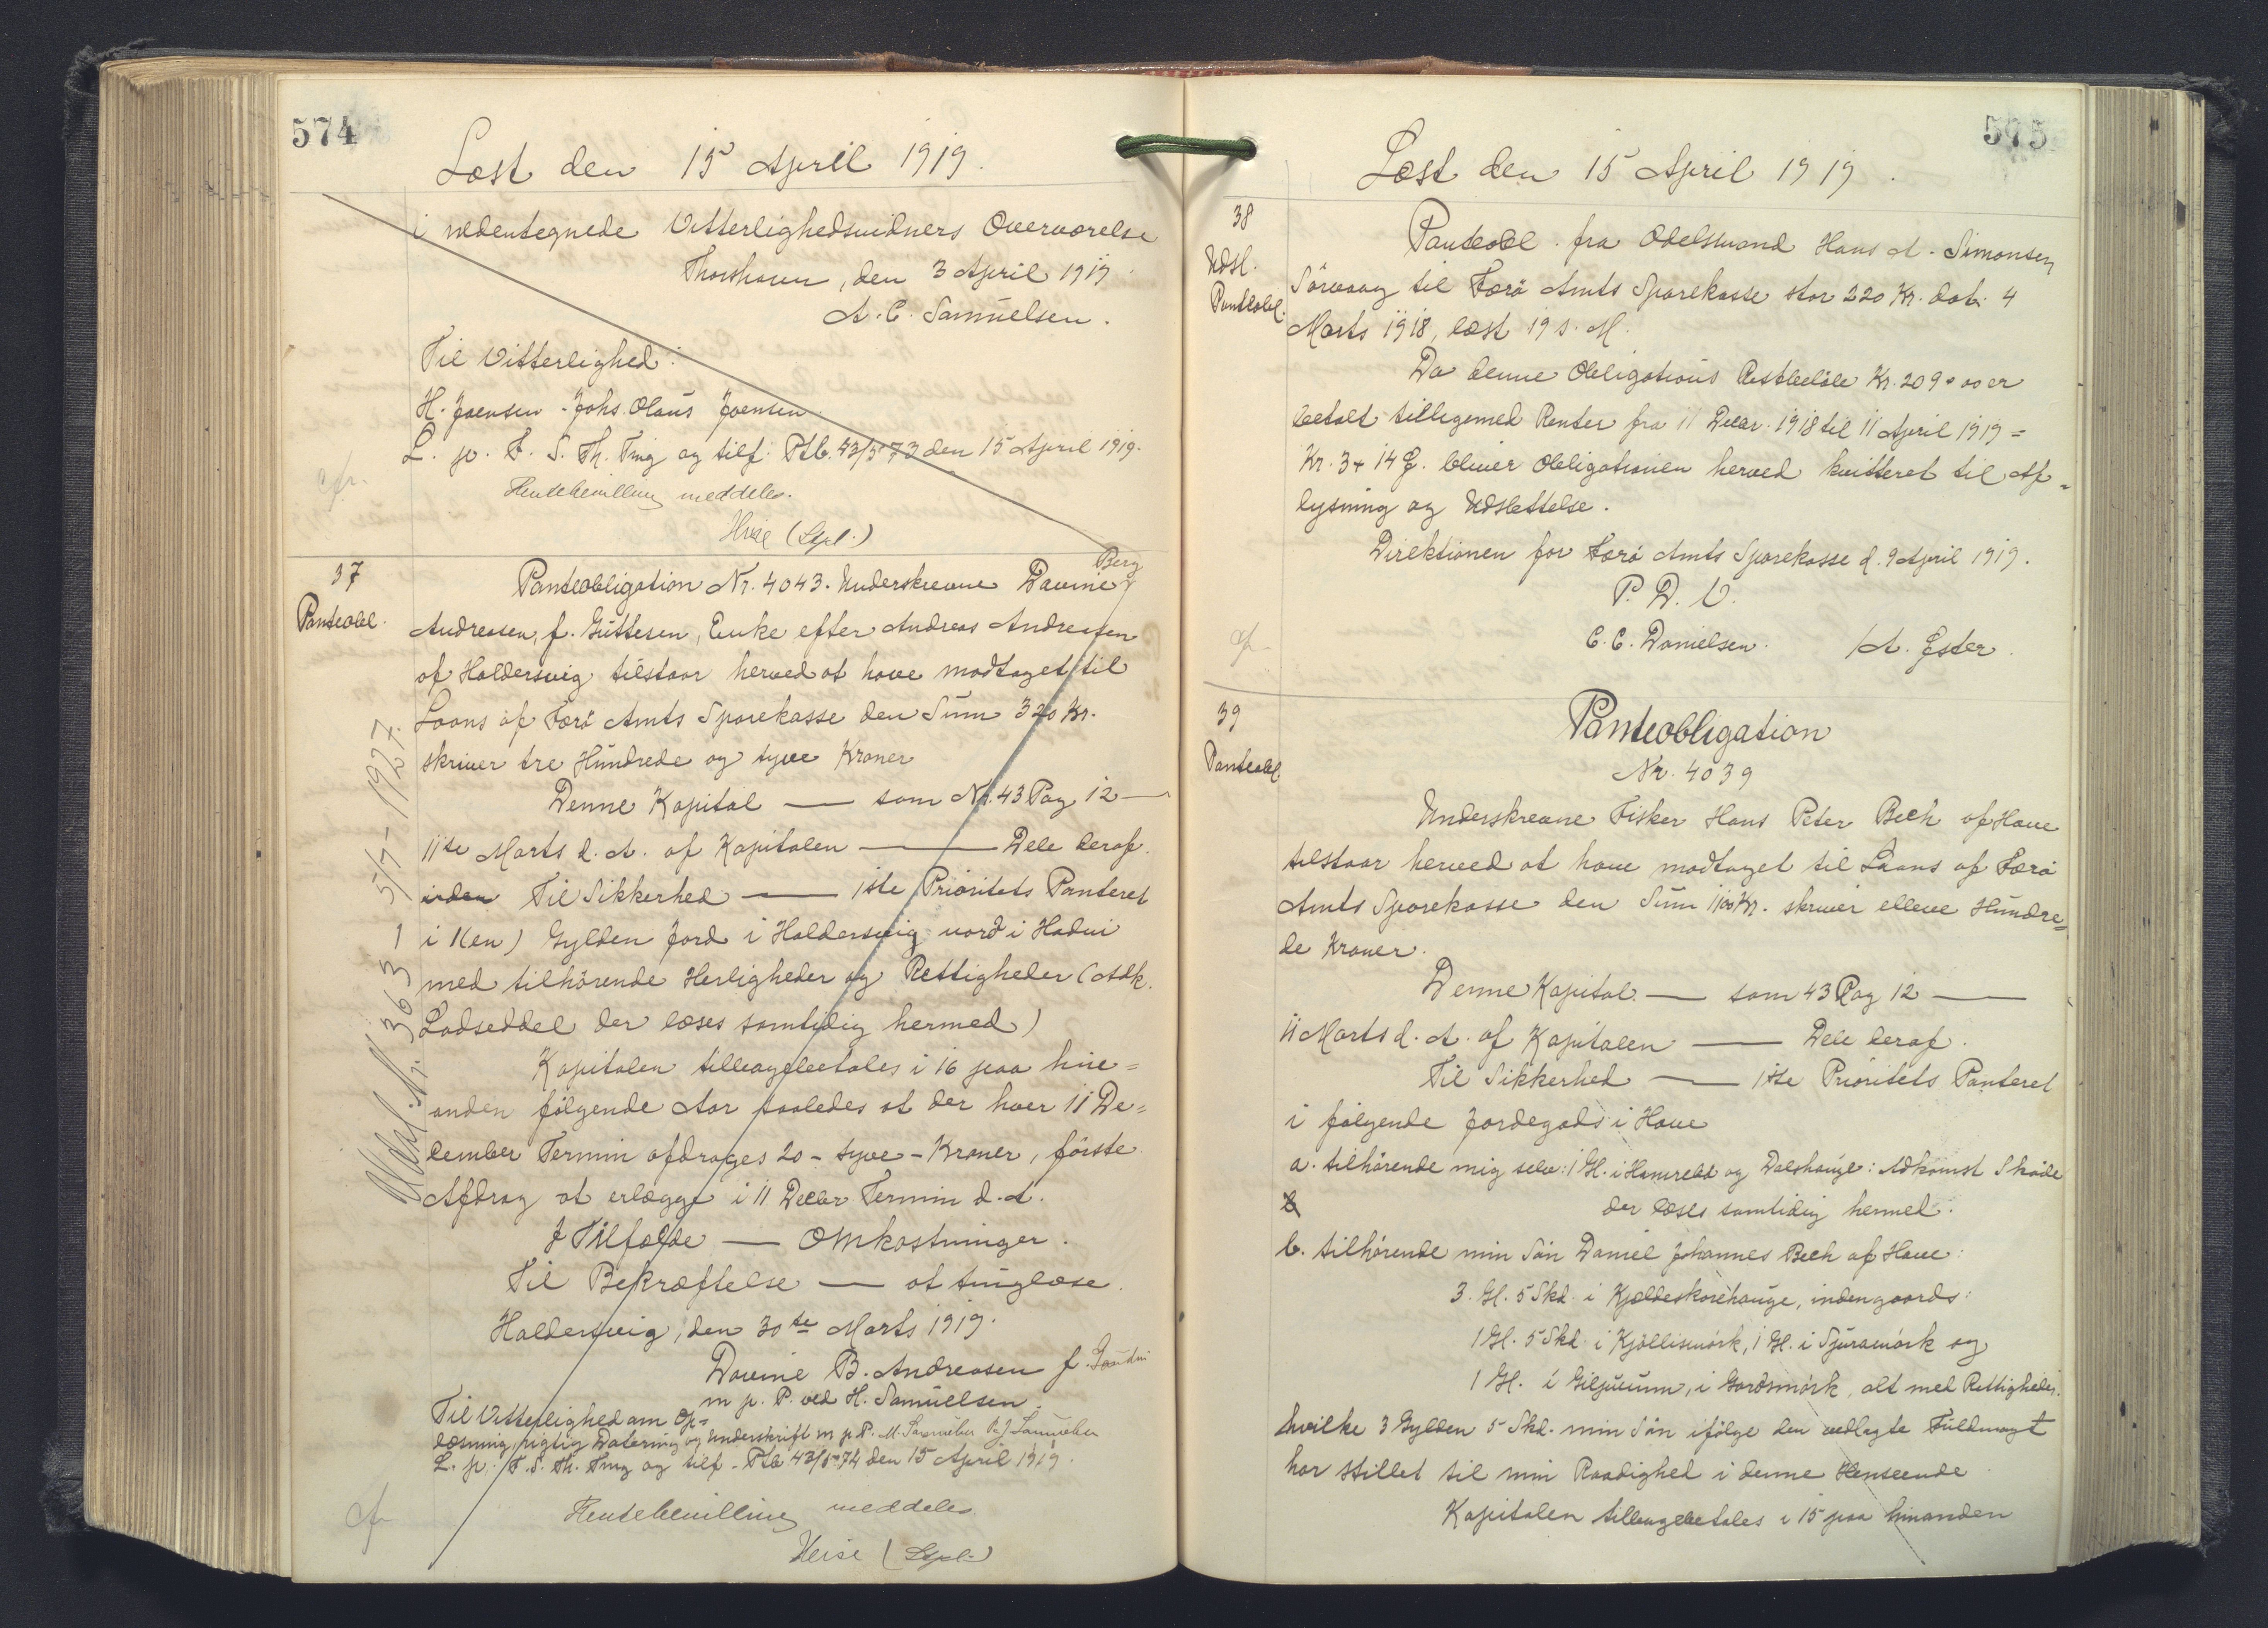 574
Læst den 15 April 1919.
i nedentegnede Vitterlighedsvidners Overværelse
Thorshavn, den 3 April 1919.
A. C. Samuelsen.
Til Vitterlighed:
H. Joensen - Johs. Olaus Joensen.
L. p. F. S. Th. Ting og tilf. Ptb. 43/573 den 15 April 1919.
cfr.
Hentebevilling meddeles.
Heise (Sspl.)
37
Panteobl.
Berg
Panteobligation Nr. 4043. Underskrevne Davine
Andreasen, f. Guttesen, Enke efter Andreas Andreasen
af Haldersvig tilstaar herved at have modtaget til
Laans af Færö Amts Sparekasse den Sum 320 Kr.
skriver tre Hundrede og tyve Kroner
Denne Kapital — som Nr. 43 Pag 12 —
11te Marts d. A. af Kapitalen — Dele deraf.
inden Til Sikkerhed — 1ste Prioritets Panteret
i 1 (en) Gylden Jord i Haldersvig norð i Hadni
med tilhörende Herligheder og Rettigheder (Adk.
Lodseddel der læses samtidig hermed)
Kapitalen tilbagebetales i 16 paa hin=
anden fölgende Aar saaledes at der hver 11 De=
cember Termin afdrages 20 - tyve - Kroner, förste
Afdrag at erlægge i 11 Decbr Termin d. A.
I Tilfælde — Omkostninger.
Til Bekræftelse — at tinglæse.
Haldersvig, den 30te Marts 1919.
Davine B. Andreasen f.
m p. P. ved H. Samuelsen.
Til Vitterlighed om Op=
læsning, rigtig Datering og Underskrift m p. P. M. Samuelsen P. J. Samuelsen
L. p. F. S. Th. Ting og tilf. Ptb 43/574 den 15 April 1919.
cfr
Hentebevilling meddeles
Heise (Sspl.)
Udsl. Nr. 363 1 5/7-1927.
575
Læst den 15 April 1919.
38
Udsl.
Panteobl.
Panteobl. fra Odelsmand Hans A. Simonsen
Sörvaag til Færö Amts Sparekasse stor 220 Kr. dat. 4
Marts 1918, læst 19 s. M.
Da denne Obligations Restbeløb Kr. 209 . 00 er
betalt tilligemed Renter fra 11 Decbr. 1918 til 11 April 1919 =
Kr. 3 + 14 Ø. bliver Obligationen herved kvitteret til Af=
lysning og Udslettelse.
Direktionen for Færö Amts Sparekasse d. 9 April 1919.
P. D. V.
C. C. Danielsen. /A. Ester.
cfr
39
Panteobl.
Panteobligation
Nr. 4039
Underskrevne Fisker Hans Peter Bech af Hove
tilstaar herved at have modtaget til Laans af Færö
Amts Sparekasse den Sum 1100 Kr. skriver elleve Hundre=
de Kroner.
Denne Kapital — som 43 Pag 12 —
11 Marts d. A. af Kapitalen — Dele deraf.
Til Sikkerhed — 1ste Prioritets Panteret
i fölgende Jordegods i Hove
a. tilhörende mig selv: 1 Gl. i Hamrebø og Dalshauge: Adkomst Sköde
b
der læses samtidig hermed.
b. tilhörende min Sön Daniel Johannes Bech af Hove:
3 Gl. 5 Skd. i Kjeldeskorehauge, indengaards:
1 Gl. 5 Skd i Kjöllismörk, 1 Gl. i Sjuramörk og
1 Gl. i Giljunum, i Gardsmörk, alt med Rettigheder.
hvilke 3 Gylden 5 Skd. min Sön ifölge den vedlagte Fuldmagt
har stillet til min Raadighed i denne Henseende
Kapitalen tilbagebetales i 15 paa hinanden